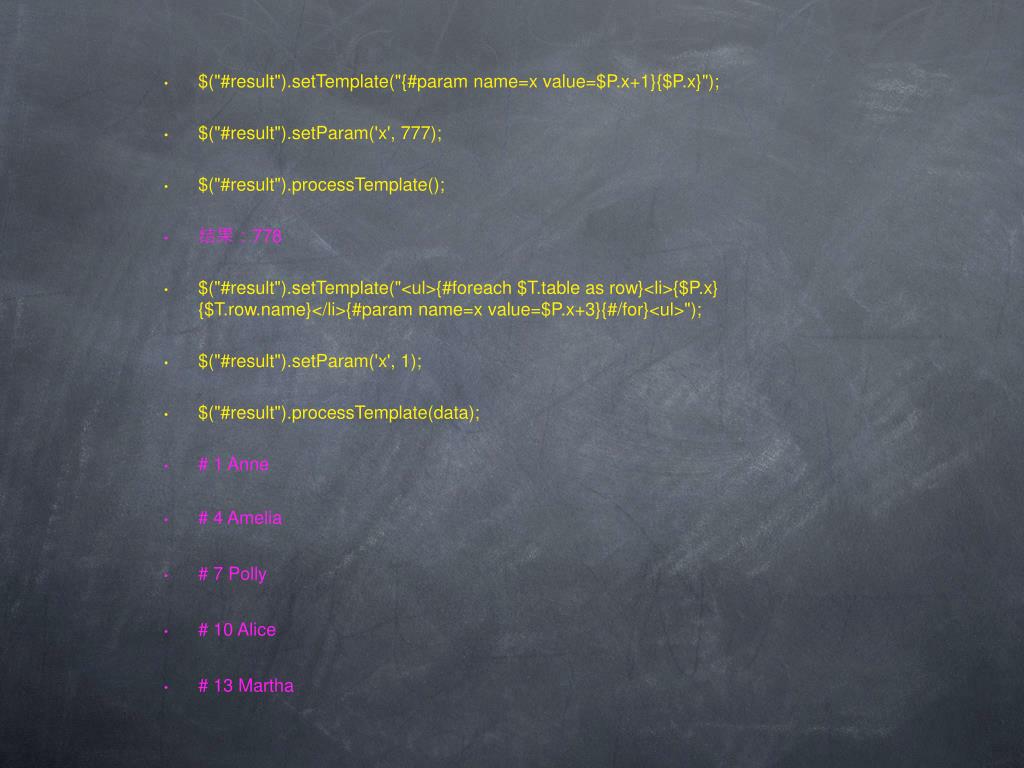 $("#result").setTemplate("{#param name=x value=$P.x+1}{$P.x}");
$("#result").setParam('x', 777);
$("#result").processTemplate();
结果：778
$("#result").setTemplate("<ul>{#foreach $T.table as row}<li>{$P.x}
{$T.row.name}</li>{#param name=x value=$P.x+3}{#/for}<ul>");
$("#result").setParam('x', 1);
$("#result").processTemplate(data);
# 1 Anne
# 4 Amelia
# 7 Polly
# 10 Alice
# 13 Martha